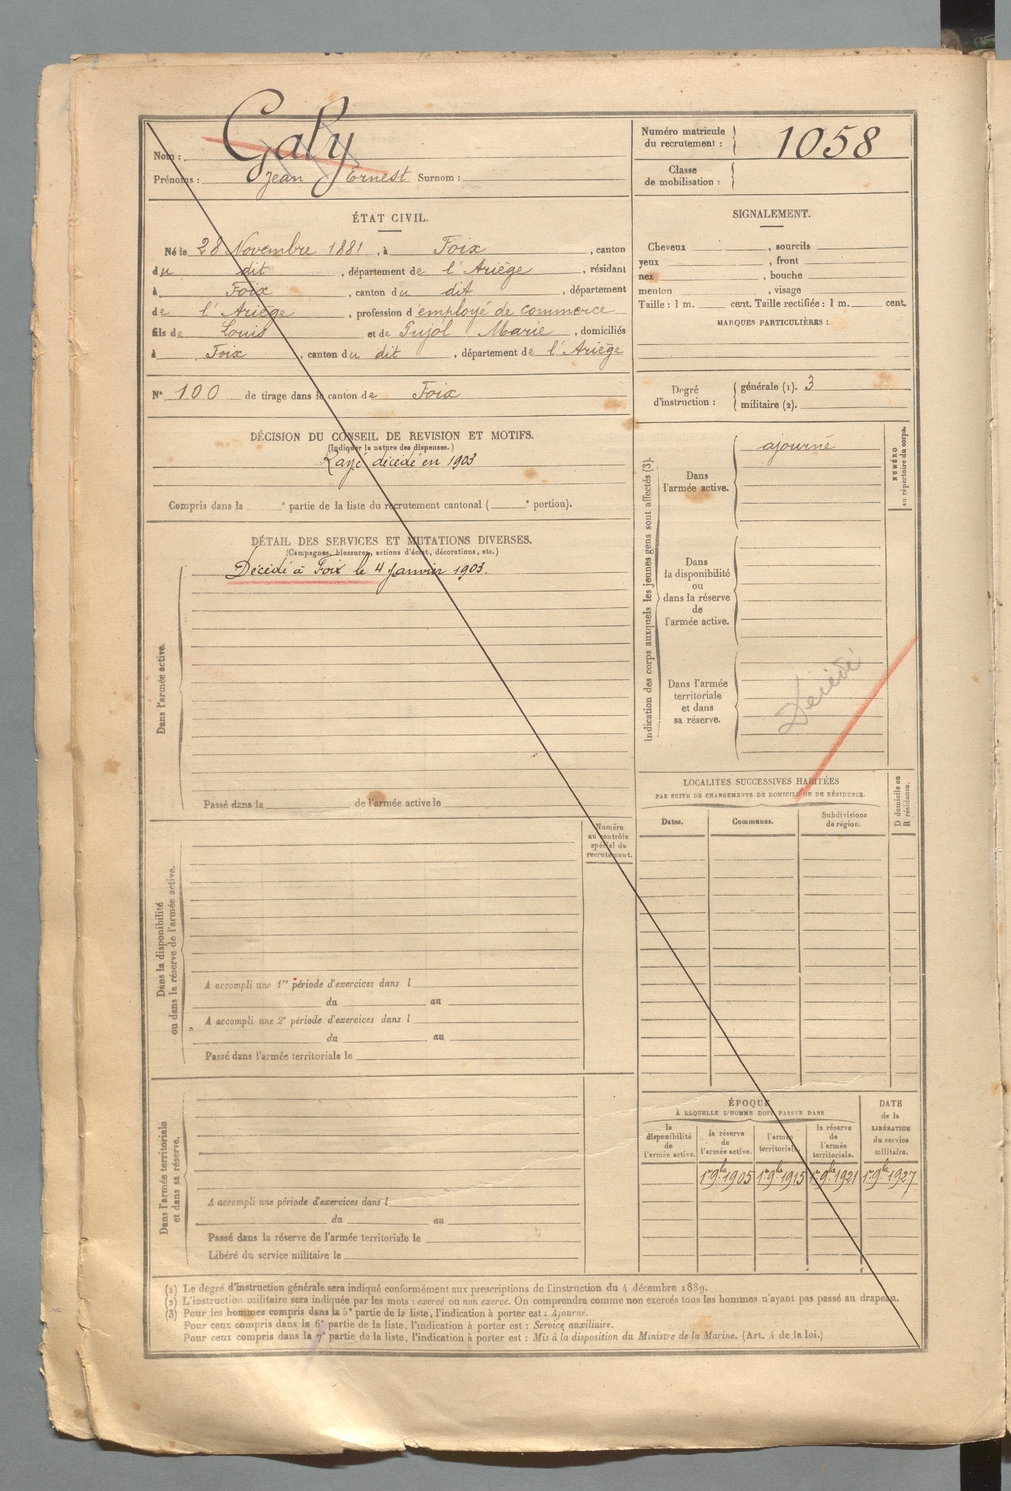 Nom : Galy
Prénoms : Jean Ernest Surnom :
ÉTAT CIVIL.
Né le 28 Novembre 1881, à Foix, canton
du dit, département de l'Ariège, résidant
à Foix, canton du dit, département
de l'Ariège, profession d'employé de commerce
fils de Louis et de Pujol Marie, domiciliés
à Foix, canton du dit, département de l'Ariège
N° 100 de tirage dans le canton de Foix
DÉCISION DU CONSEIL DE REVISION ET MOTIFS.
(Indiquer la nature des dispenses.)
Rayé décédé en 1903
Compris dans la e partie de la liste du recrutement cantonal ( e portion).
DÉTAIL DES SERVICES ET MUTATIONS DIVERSES.
(Campagnes, blessures, actions d'éclat, décorations, etc.)
Décédé à Foix le 4 Janvier 1903.
Dans l'armée active.
Passé dans la de l'armée active le
Numéro
au contrôle
spécial du
recrutement.
Dans la disponibilité
ou dans la réserve de l'armée active.
A accompli une 1re période d'exercices dans l
du au
A accompli une 2e période d'exercices dans l
du au
Passé dans l'armée territoriale le
Dans l'armée territoriale
et dans sa réserve.
A accompli une période d'exercices dans l
du au
Passé dans la réserve de l'armée territoriale le
Libéré du service militaire le
Numéro matricule
du recrutement : 1058
Classe
de mobilisation :
SIGNALEMENT.
Cheveux , sourcils
yeux , front
nez , bouche
menton , visage
Taille : 1 m. cent. Taille rectifiée : 1 m. cent.
MARQUES PARTICULIÈRES :
Degré
d'instruction :
générale (1). 3
militaire (2).
Indication des corps auxquels les jeunes gens sont affectés (3).
Dans
l'armée active.
ajourné
NUMÉRO
au répertoire du corps.
Dans
la disponibilité
ou
dans la réserve
de
l'armée active.
Dans l'armée
territoriale
et dans
sa réserve.
Décédé
LOCALITÉS SUCCESSIVES HABITÉES
PAR SUITE DE CHANGEMENTS DE DOMICILE OU DE RÉSIDENCE.
D domicile ou
R résidence.
Dates. Communes. Subdivisions
de région.
ÉPOQUE
À LAQUELLE L'HOMME DOIT PASSER DANS
DATE
de la
LIBÉRATION
du service
militaire.
la
disponibilité
de
l'armée active.
la réserve
de
l'armée active.
l'armée
territoriale.
la réserve
de
l'armée
territoriale.
1er 9bre 1905 1er 9bre 1915 1er 9bre 1921 1er 9bre 1927
(1) Le degré d'instruction générale sera indiqué conformément aux prescriptions de l'instruction du 4 décembre 1889.
(2) L'instruction militaire sera indiquée par les mots : exercé ou non exercé. On comprendra comme non exercés tous les hommes n'ayant pas passé au drapeau.
(3) Pour les hommes compris dans la 5e partie de la liste, l'indication à porter est : Ajourné.
Pour ceux compris dans la 6e partie de la liste, l'indication à porter est : Service auxiliaire.
Pour ceux compris dans la 7e partie de la liste, l'indication à porter est : Mis à la disposition du Ministre de la Marine. (Art. 4 de la loi.)